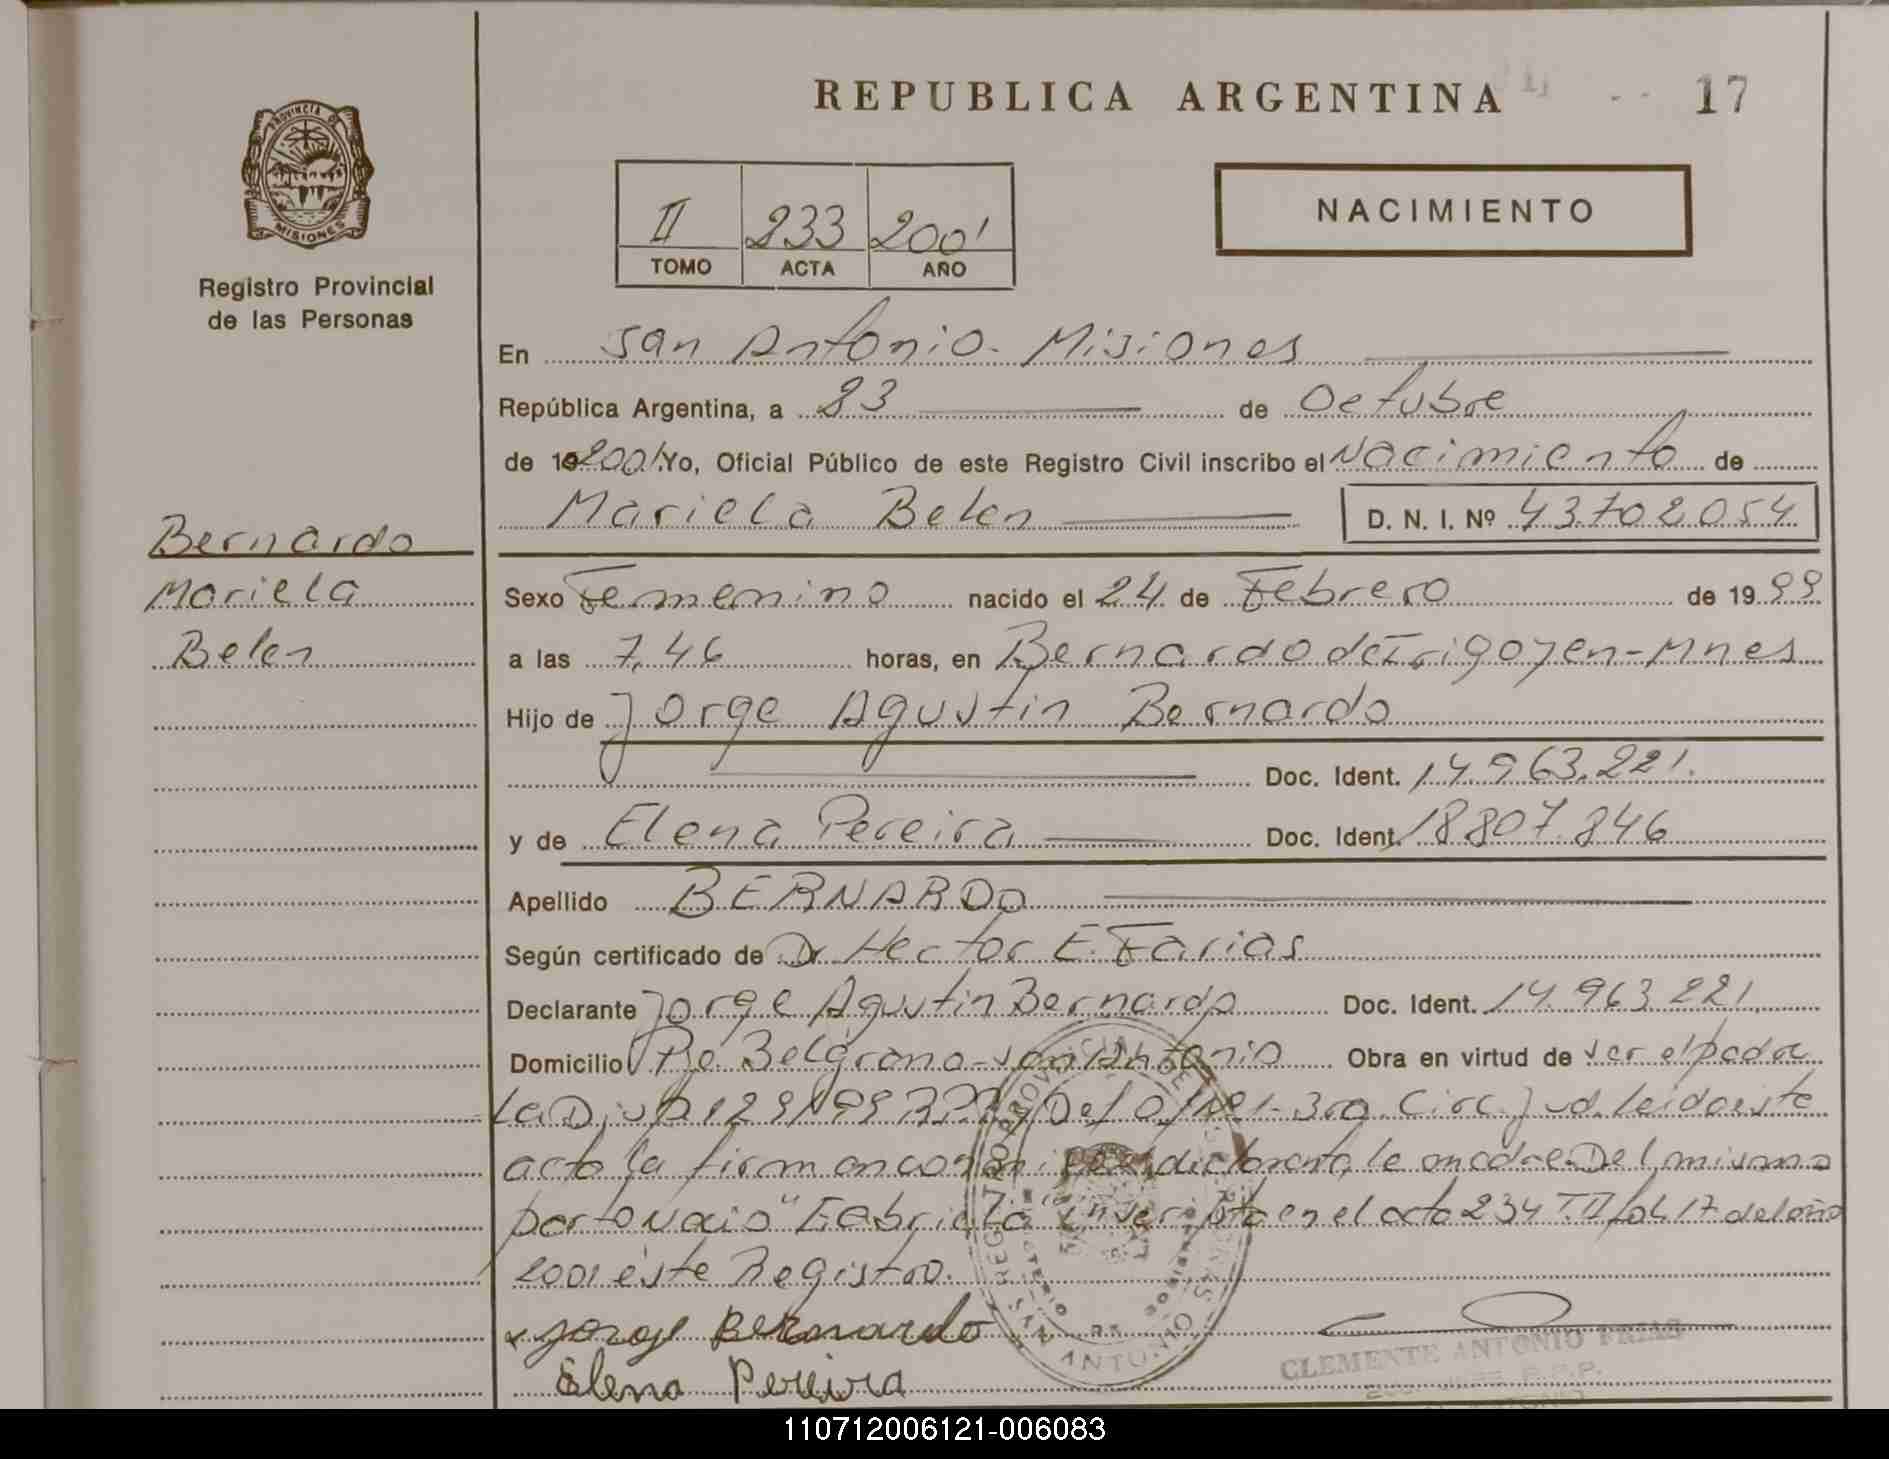 REPUBLICA ARGENTINA
17
PROVINCIA DE
MISIONES
Registro Provincial
de las Personas
II 233 2001
TOMO ACTA AÑO
NACIMIENTO
En San Antonio - Misiones
República Argentina, a 23 de Octubre
de 19 2001 Yo, Oficial Público de este Registro Civil inscribo el Nacimiento de
Mariela Belen D. N. I. Nº 43702054
Bernardo
Mariela
Belen
Sexo Femenino nacido el 24 de Febrero de 1999
a las 7,46 horas, en Bernardo de Irigoyen - Mnes
Hijo de Jorge Agustin Bernardo
Doc. Ident. 14.963.221.
y de Elena Pereira Doc. Ident. 18807.846
Apellido BERNARDO
Según certificado de Dr Hector E. Farias
Declarante Jorge Agustin Bernardo Doc. Ident. 14.963.221
Domicilio Belgrano - San Antonio Obra en virtud de ser el padre
3ra. Circ. Jud. leido este
acta la firman la madre Del mismo
parto Nacio inscripta en el acta 234 T. II fol. 17 del año
2001 este Registro.
Jorge Bernardo
Elena Pereira
REGISTRO PROVINCIAL DE LAS PERSONAS
SAN ANTONIO
CLEMENTE ANTONIO FRIAS
110712006121-006083